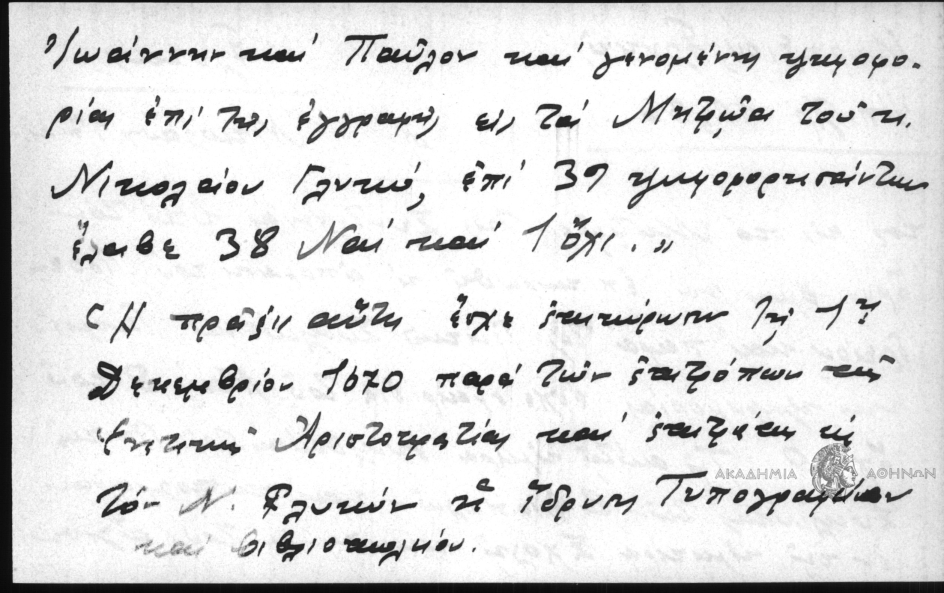 Ἰωάννην καί Παῦλον καί γενομένης ψηφοφο-
ρίας ἐπί τῆς ἐγγραφῆς εἰς τά Μητρῶα τοῦ κ.
Νικολαίου Γλυκύ, ἐπί 39 ψηφοφορησάντων
ἔλαβε 38 Ναί καί 1 ὄχι."
( Ἡ πρᾶξις αὕτη ἔσχε ἐπικύρωσιν τῇ 1ῃ
Δεκεμβρίου 1670 παρά τῶν ἐπιτρόπων τῆς
Ἑνετικῆς Ἀριστοκρατίας καί ἐπιτρέπει εἰς
τόν Ν. Γλυκύν τήν ἵδρυσιν Τυπογραφείου
καί βιβλιοπωλείου.
ΑΚΑΔΗΜΙΑ ΑΘΗΝΩΝ